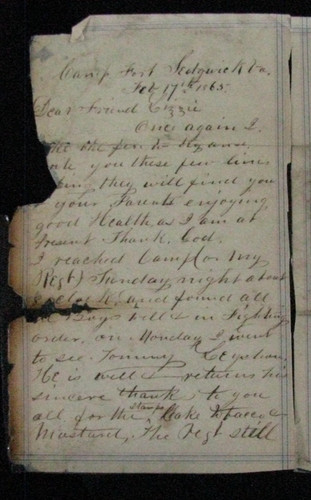 Camp Fort Sedgwick Va.
Feb 17th 1865.
Dear Friend Lizzie
Once again I
the pen to
you these few lines
they will find you
your Parents enjoying
good Health, as I am at
Present Thank, God.
I reached Camp (or My
Regt) Sunday night about
and found all
Boys well & in Fighting
order, on Monday I went
to see Tommy
He is well & returns his
sincere thanks to you
all for the Stamps Cake Tobacco &
Mustard, The Regt still